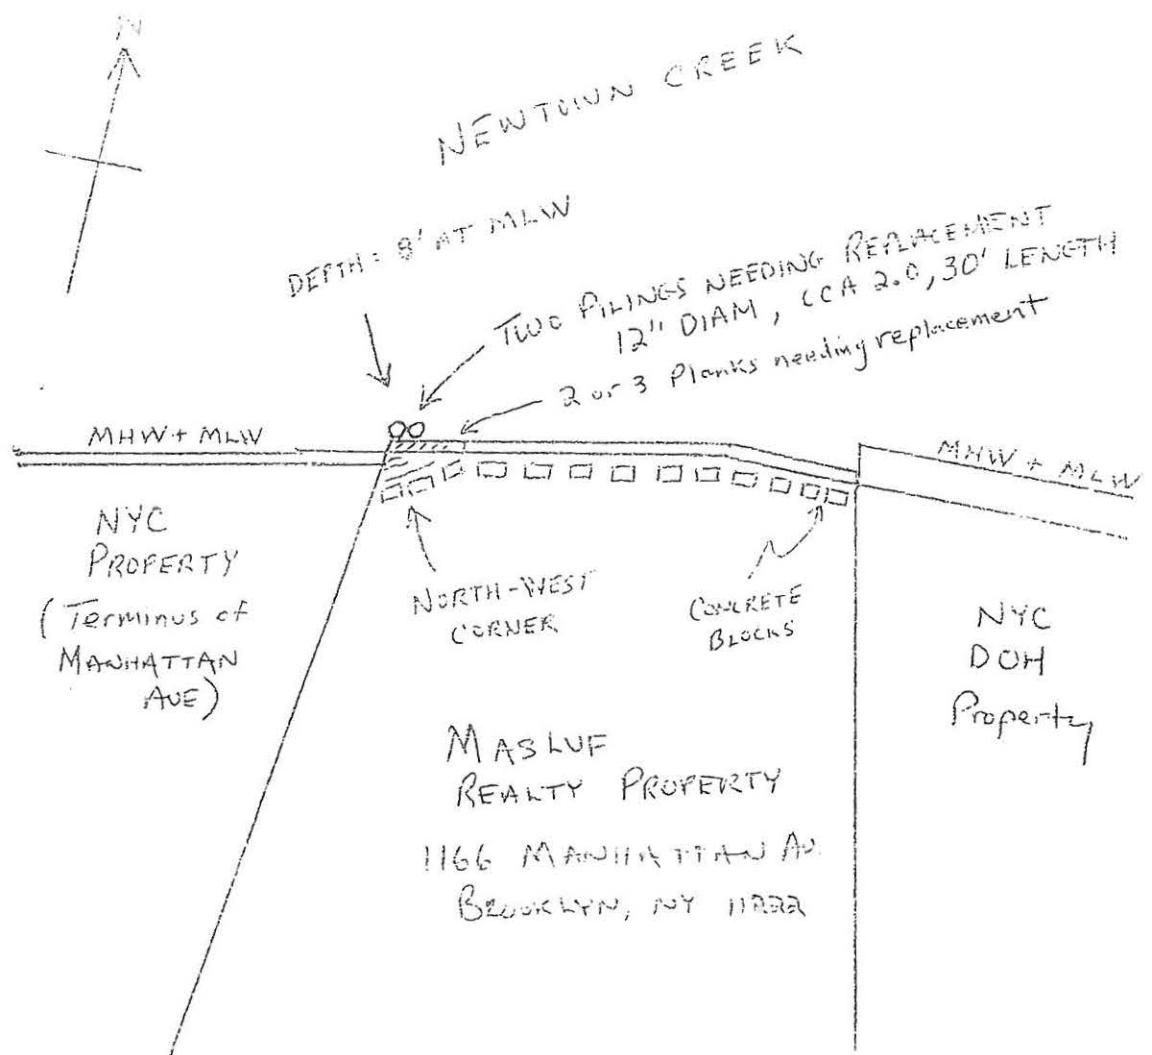 N
NEWTOWN CREEK
DEPTH: 8' AT MLW
TWO PILINGS NEEDING REPLACEMENT
12" DIAM, CCA 2.0, 30' LENGTH
2 or 3 Planks needing replacement
MHW + MLW
MHW + MLW
NYC
PROPERTY
(Terminus of
MANHATTAN
AVE)
NORTH-WEST
CORNER
CONCRETE
BLOCKS
NYC
DOH
Property
MASLUF
REALTY PROPERTY
1166 MANHATTAN AV.
BROOKLYN, NY 11222